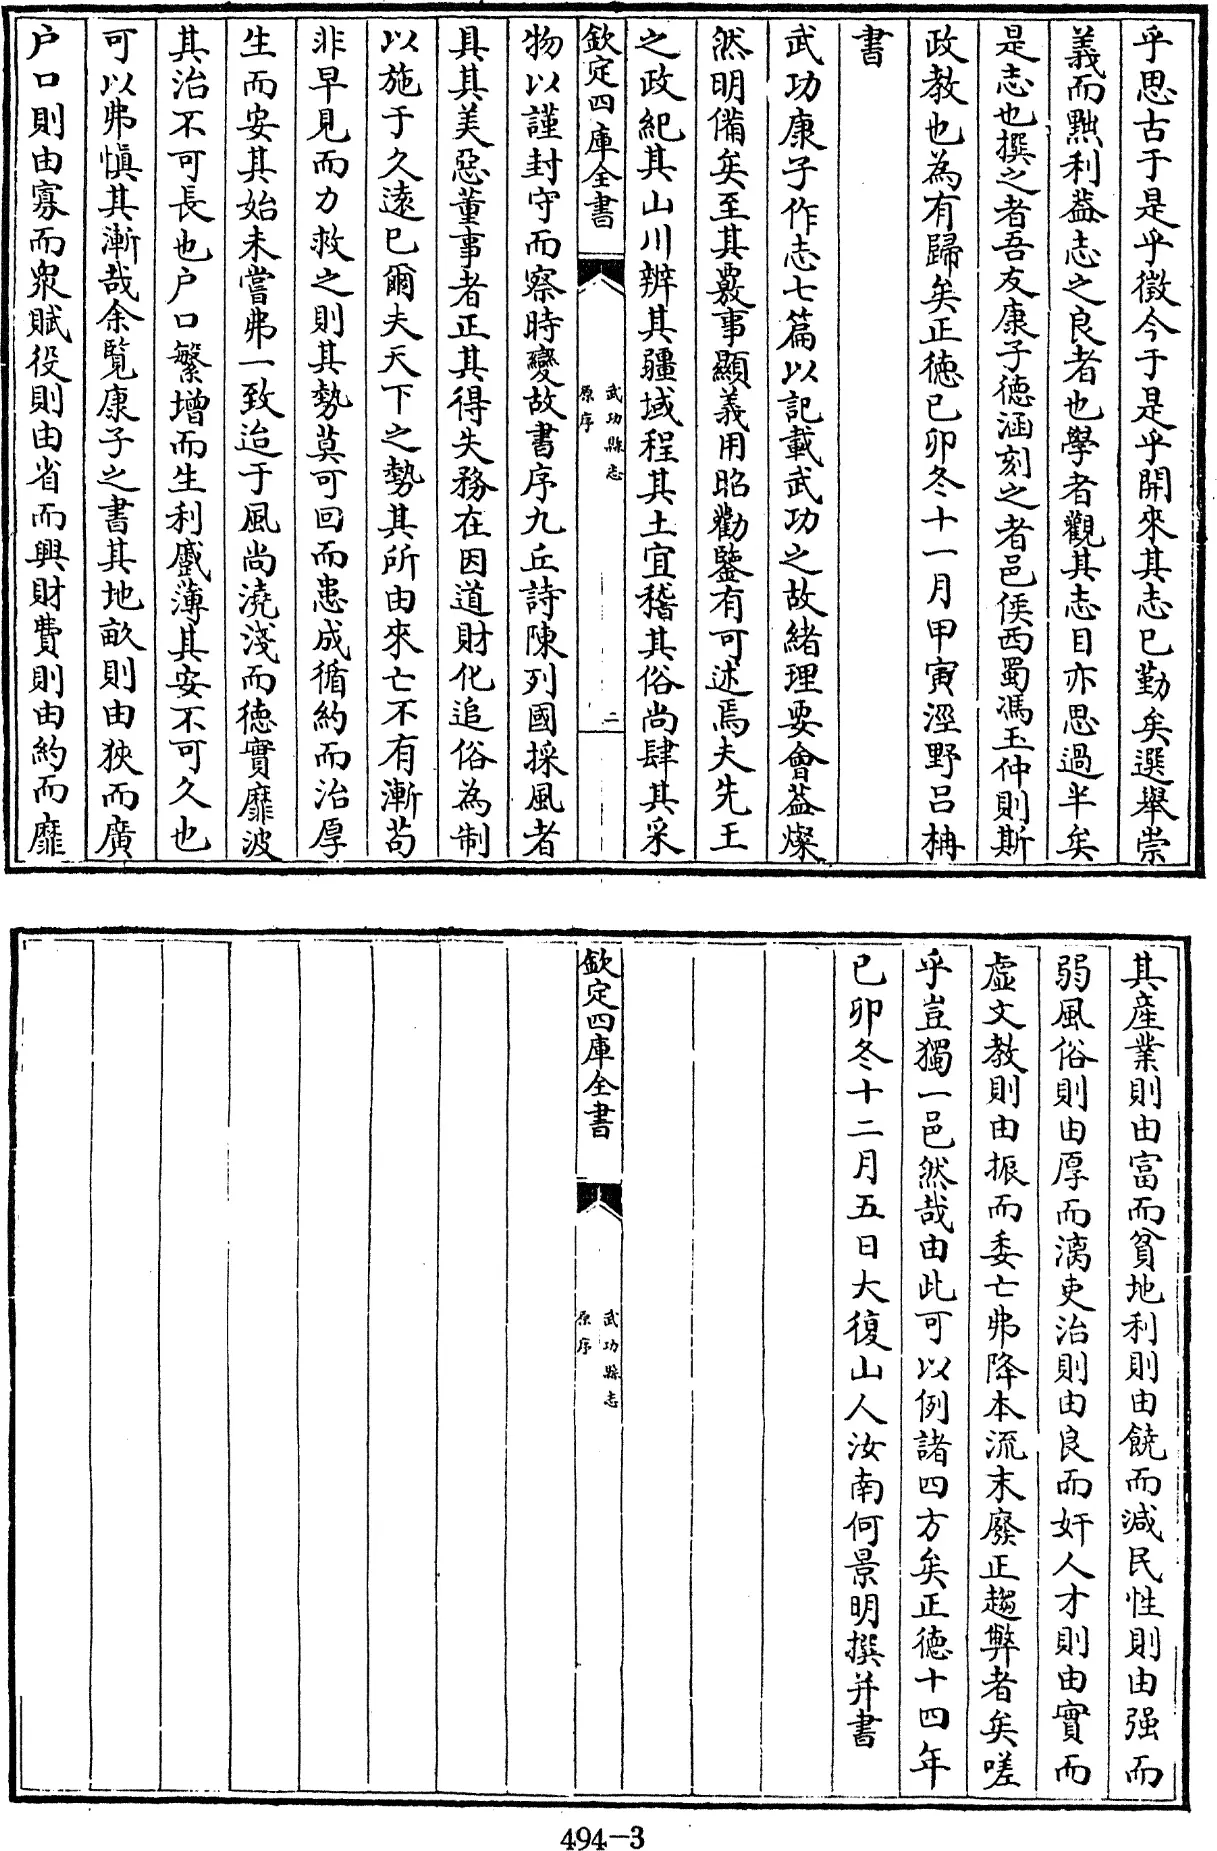 乎思古于是乎徵今于是乎開來其志已勤矣選舉崇
義而黜利葢志之良者也學者觀其志目亦思過半矣
是志也撰之者吾友康子德涵刻之者邑侯西蜀馮玉仲則斯
政教也為有歸矣正德己卯冬十一月甲寅涇野呂柟
書
武功康子作志七篇以記載武功之故緒理要會葢燦
然明備矣至其覈事顯義用昭勸鑒有可述焉夫先王
之政紀其山川辨其疆域程其土宜稽其俗尚肆其采
欽定四庫全書
武功縣志
原序
二
物以謹封守而察時變故書序九丘詩陳列國採風者
具其美惡董事者正其得失務在因道財化追俗為制
以施于久遠已爾夫天下之勢其所由來亡不有漸苟
非早見而力救之則其勢莫可回而患成循約而治厚
生而安其始未嘗弗一致迨于風尚澆淺而德實靡波
其治不可長也户口繁增而生利戲薄其安不可久也
可以弗慎其漸哉余覽康子之書其地畝則由狹而廣
户口則由寡而衆賦役則由省而興財費則由約而靡
其產業則由富而貧地利則由饒而減民性則由强而
弱風俗則由厚而漓吏治則由良而奸人才則由實而
虛文教則由振而委亡弗降本流末廢正趨弊者矣嗟
乎豈獨一邑然哉由此可以例諸四方矣正德十四年
己卯冬十二月五日大復山人汝南何景明撰并書
欽定四庫全書
武功縣志
原序
494-3